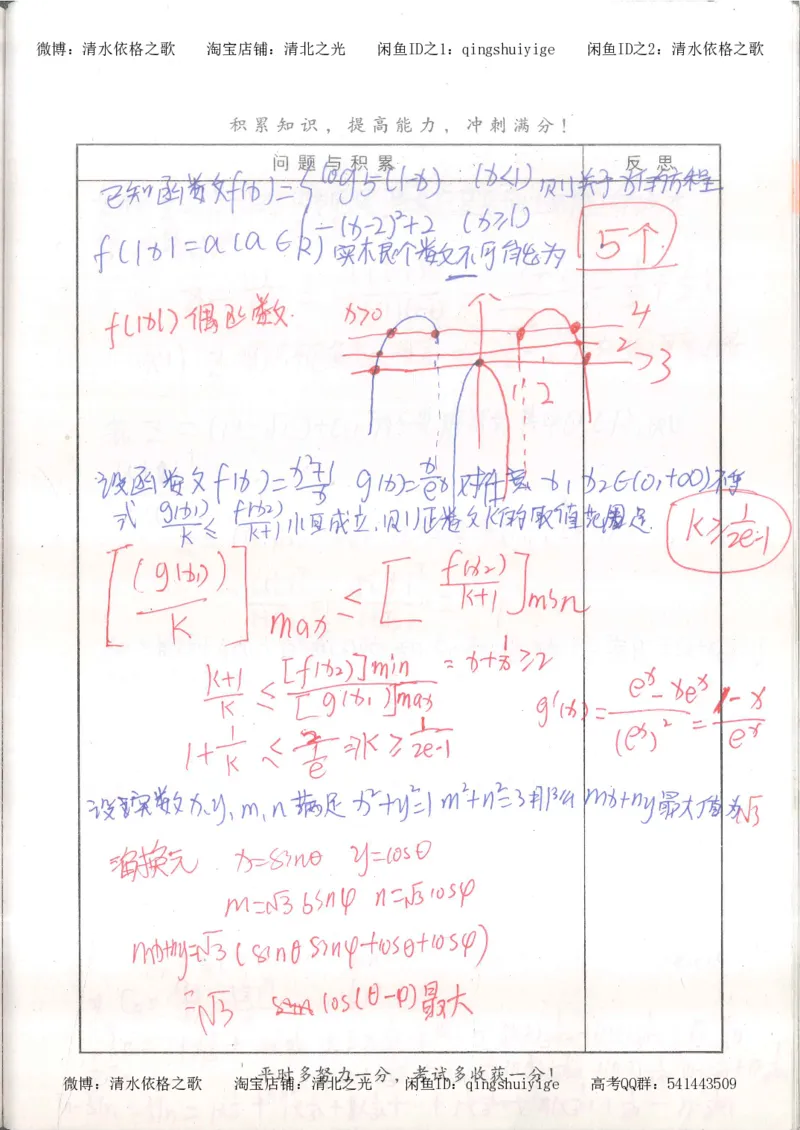 微博：清水依格之歌 淘宝店铺：清北之光 闲鱼ID之1：qingshuiyige 闲鱼ID之2：清水依格之歌
积累知识，提高能力，冲刺满分！
问题与积累 反思
已知函数f(x)={log5(1-x) (x<1) 则关于x的方程
-(x-2)²+2 (x≥1)
f(|x|)=a(a∈R) 实根个数不可能为 5个
f(|x|)偶函数. x>0
4
2
>3
1 2
设函数f(x)=x²+1/x g(x)=x/eˣ 对任意 x₁ x₂∈(0,+∞) 不等
式 g(x₁)/k ≤ f(x₂)/k+1 恒成立,则正数k的取值范围是 k≥1/2e-1
[(g(x₁))/k]max ≤ [f(x₂)/k+1]min
k+1/k ≤ [f(x₂)]min/[g(x₁)]max = x+1/x≥2
g'(x)=eˣ-xeˣ/(eˣ)²=1-x/eˣ
1+1/k ≤ 2/1/e ⇒k≥1/2e-1
设实数x,y,m,n满足x²+y²=1 m²+n²=3 那么 mx+ny最大值为√3
换元 x=sinθ y=cosθ
m=√3 sinφ n=√3cosφ
mx+ny=√3(sinθsinφ+cosθ+cosφ)
=√3 cos(θ-φ)最大
平时多努力一分，考试多收获一分！
微博：清水依格之歌 淘宝店铺：清北之光 闲鱼ID：qingshuiyige 高考QQ群：541443509